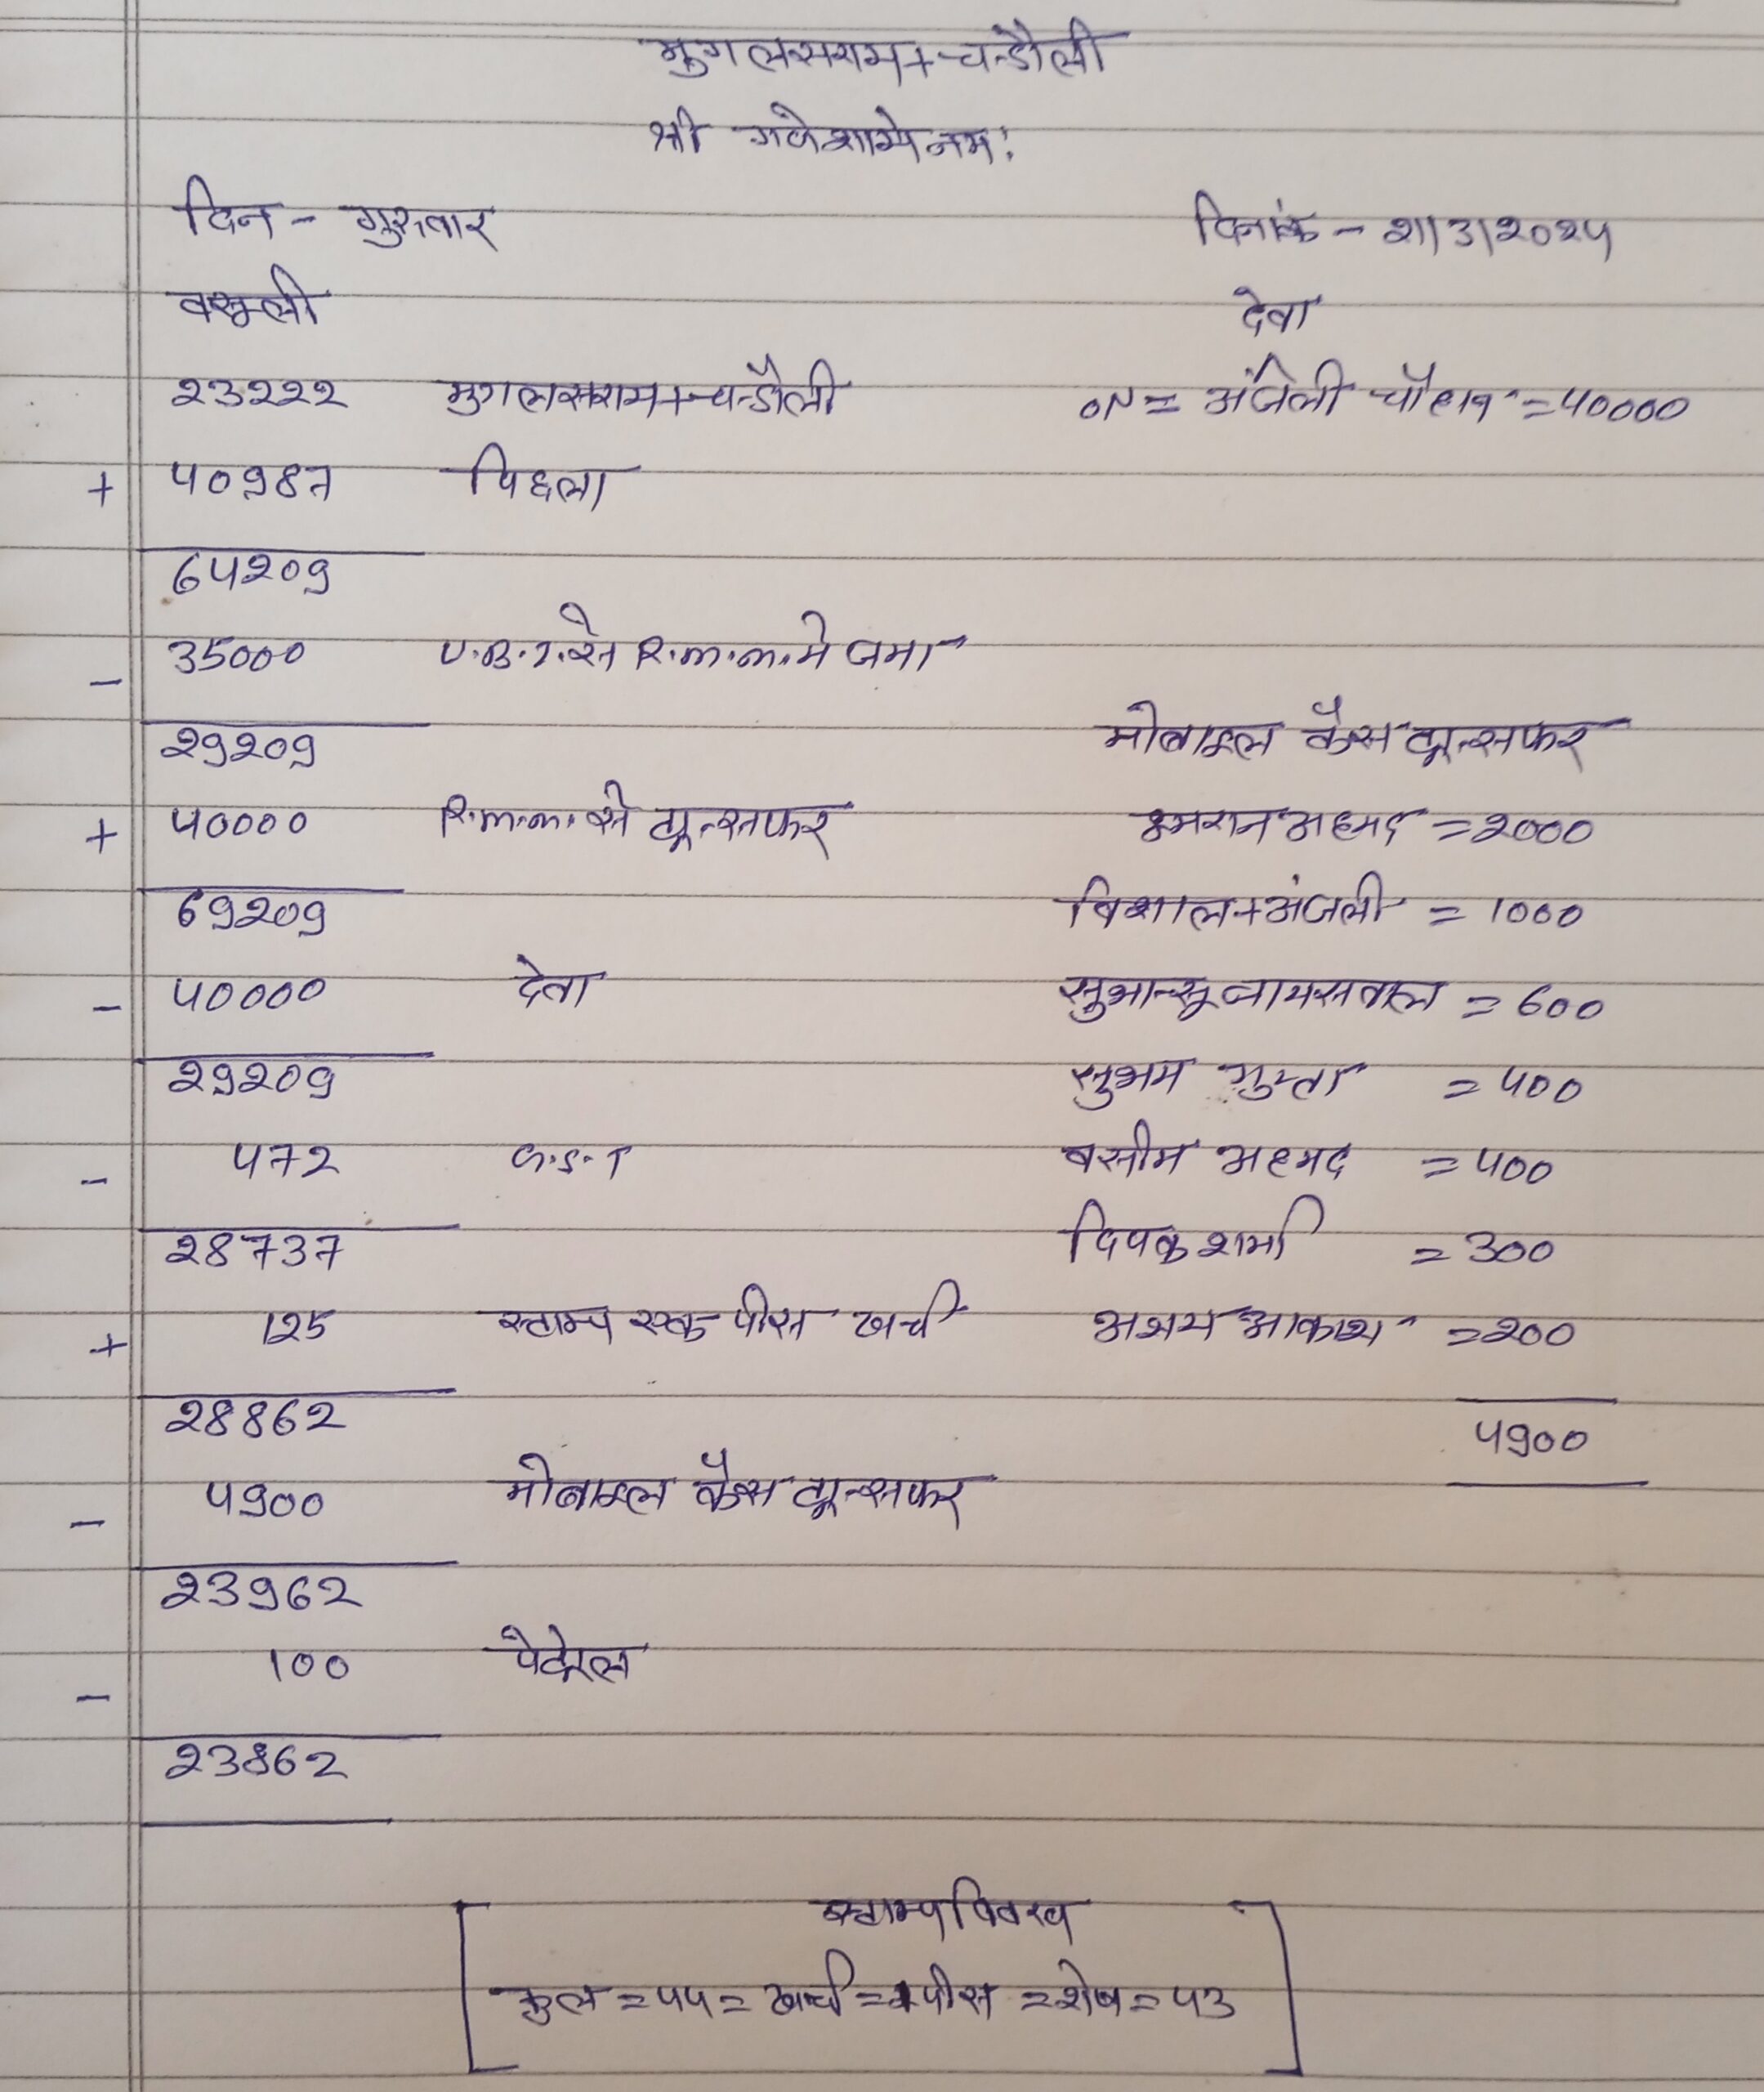 मुगलसराय+चन्डौली
श्री गणेशाये नमः
दिन - गुरुवार दिनांक - 21/3/2024
वसूली देवा
23222 मुगलसराय+चन्डौली ON = अंजली चौहान = 40000
+ 40987 पिछला
64209
- 35000 U.B.I. से R.M.M. मे जमा
29209 मोबाइल कैस ट्रान्सफर
+ 40000 R.M.M. से ट्रान्सफर इमरान अहमद = 2000
69209 विशाल+अंजली = 1000
- 40000 देवा सुभान्सू जायसवाल = 600
29209 सुभम गुप्ता = 400
- 472 C.S.T वसीम अहमद = 400
28737 दिपक शर्मा = 300
+ 125 स्टाम्प एक पीस खर्च अभय आकाश = 200
28862 4900
- 4900 मोबाइल कैस ट्रान्सफर
23962
- 100 पेट्रोल
23862
स्टाम्प विवरण
कुल = 44 = खर्च = 1 पीस = शेष = 43